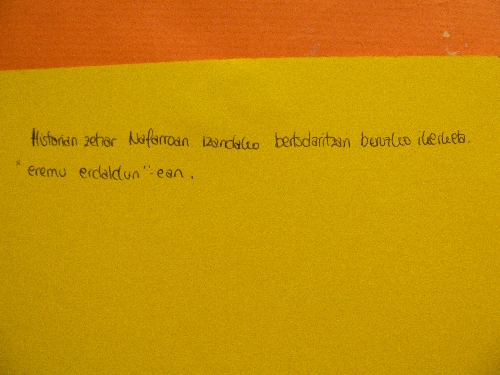 Historian zehar Nafarroan izandako bertsolaritzan beruzko ikerketa.
"eremu erdaldun"-ean.